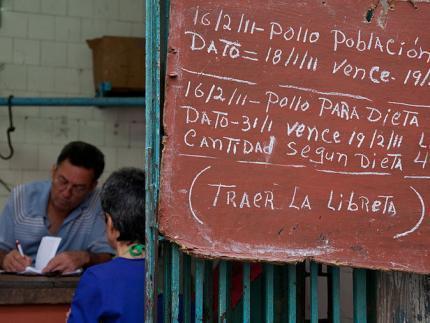 16/2/11-Pollo Población
Dato=18/1/11 vence-19/
16/2/11-Pollo PARA Dieta
Dato-31/1 vence 19/2/11 L
Cantidad segun Dieta 4
(TRAER LA LibretA)